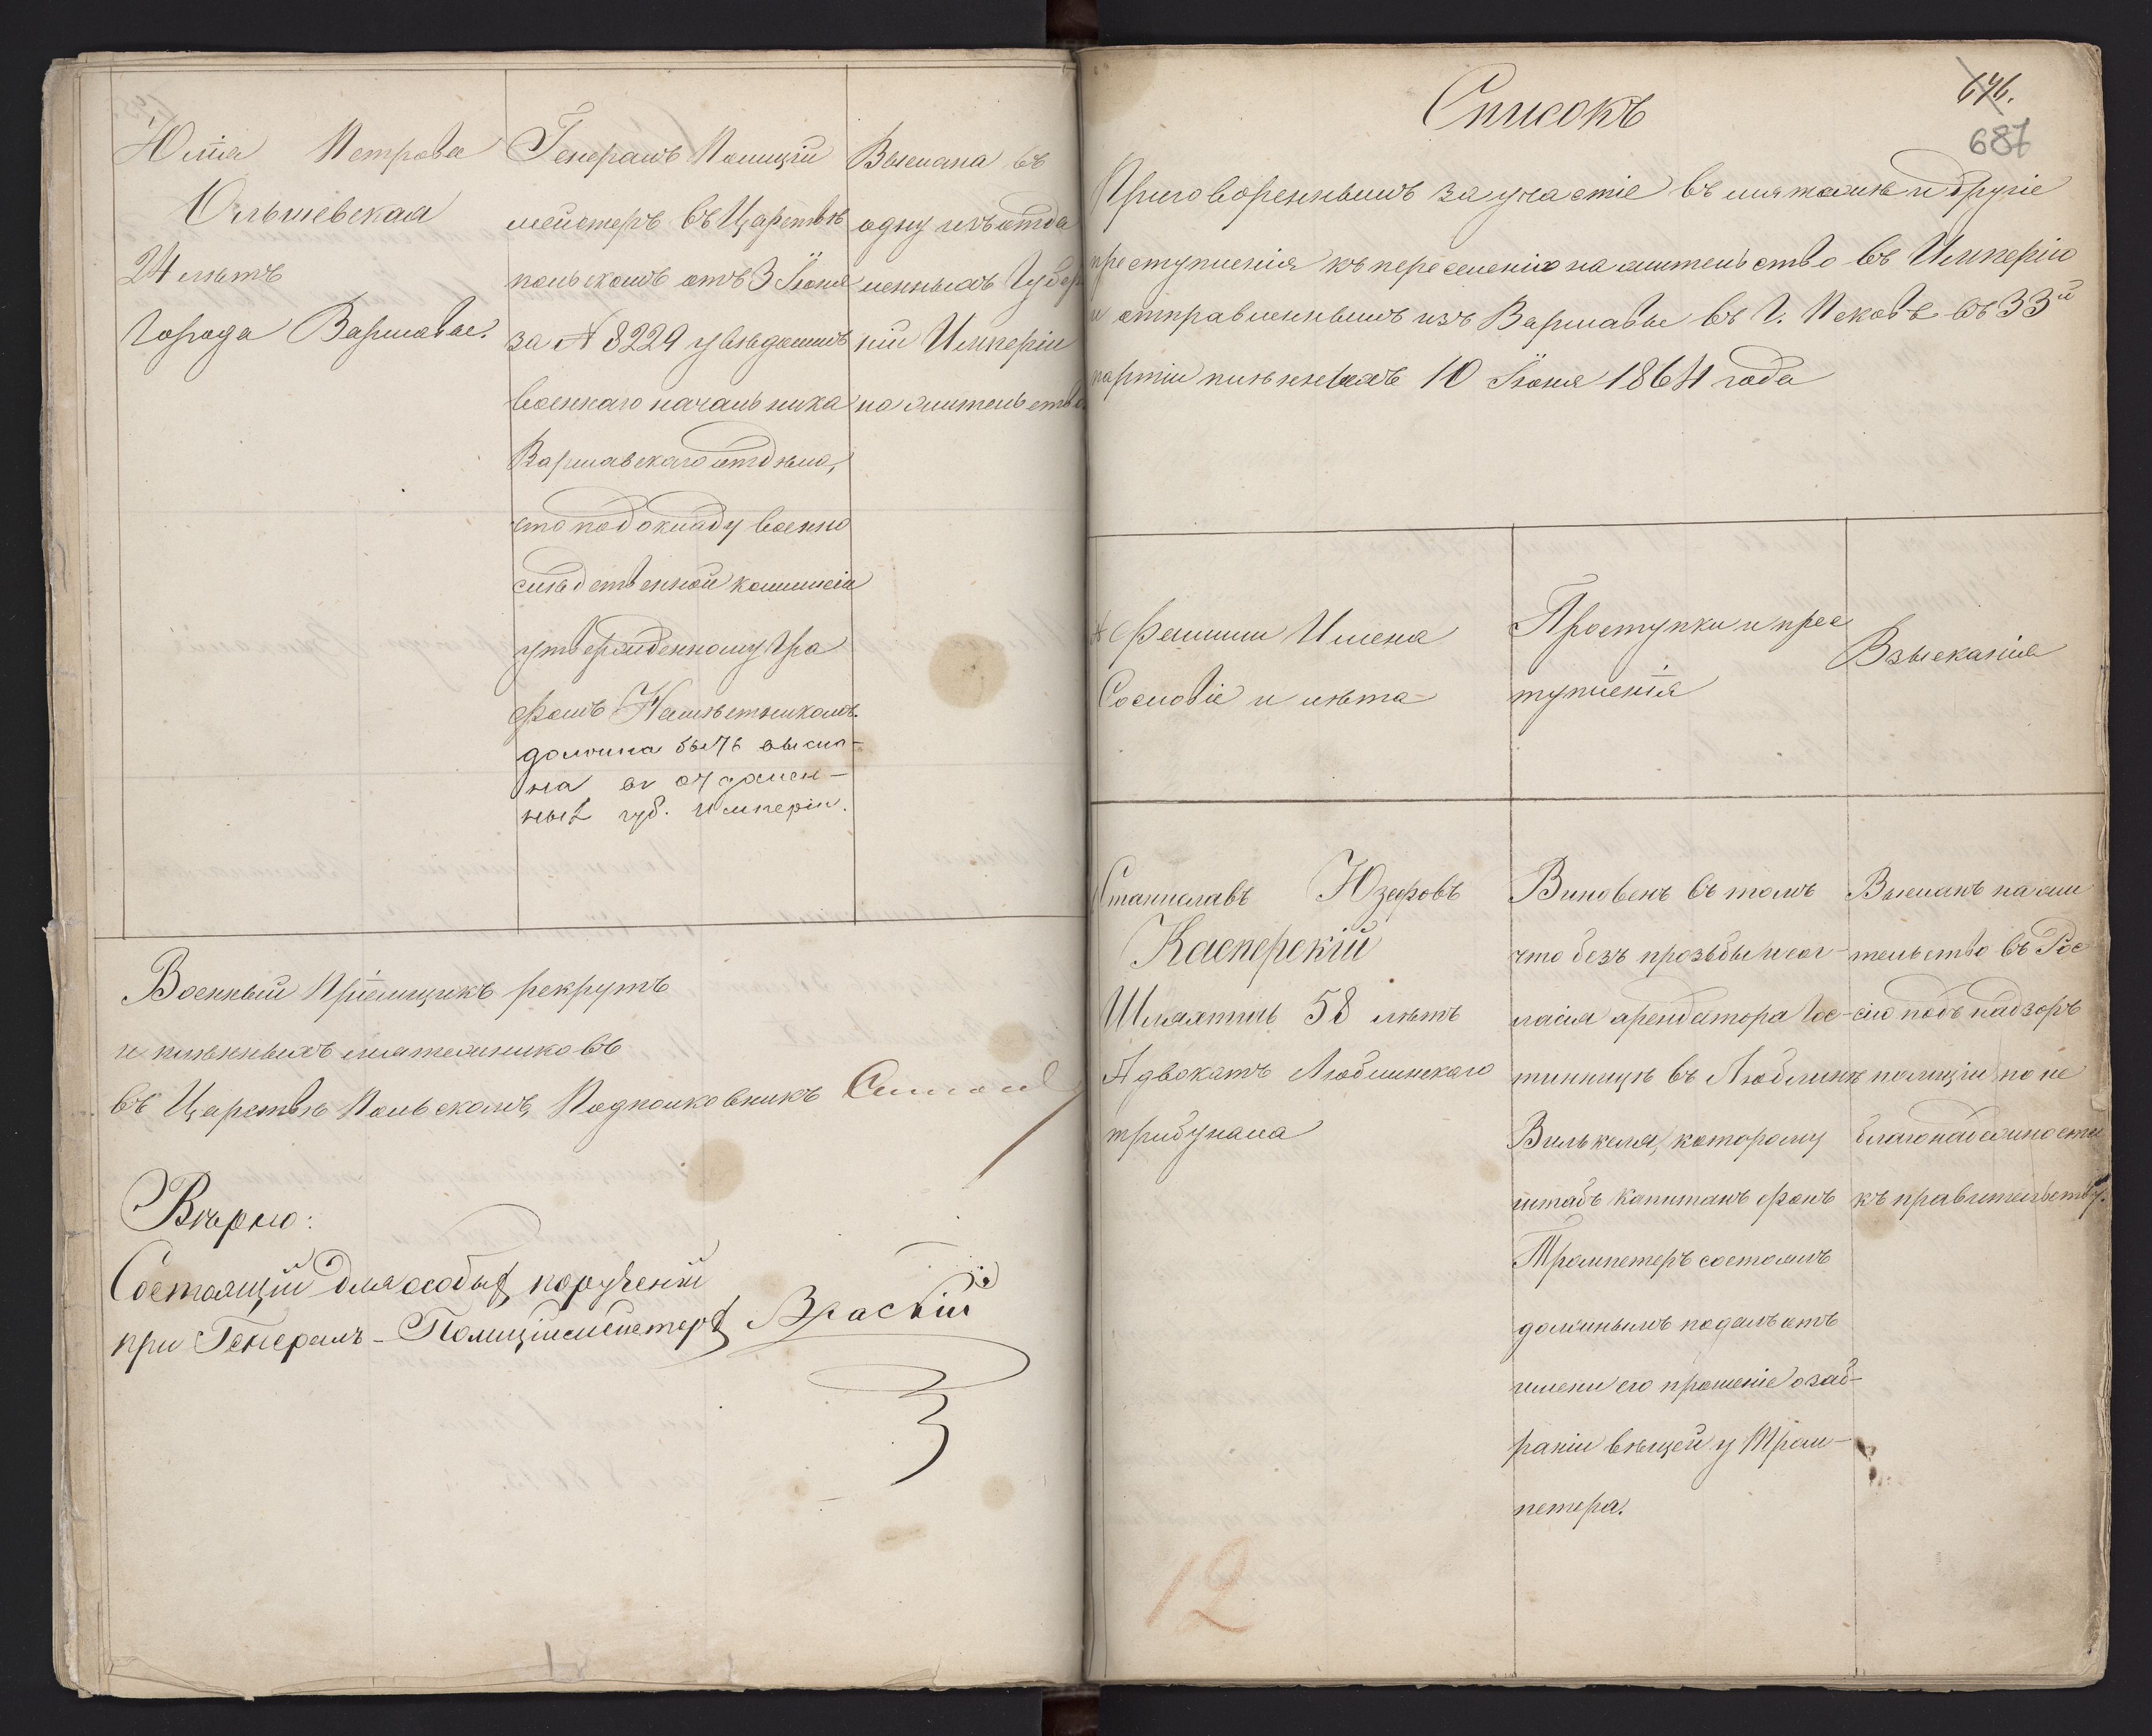 Юлія Петрова
Ольшевская
24 лѣтъ
Города Варшавы.
Генералъ Полицій
мейстеръ въ Царствѣ
польскомъ отъ 3 Іюня
за № 8229 увѣдомилъ
военнаго начальника
Варшавскаго отдѣла,
что по докладу военно
слѣдственной коммисіи
утвержденному Гра
фомъ Намѣстникомъ.
должна быть высла-
на въ отдален-
ныя губ. Имперіи.
Выслана въ
одну изъ отда
ленныхъ Губер
ній Имперіи
на жительство
Военный Пріемщикъ рекрутъ
и плѣнныхъ мятежниковъ
въ Царствѣ Польскомъ, Подполковникъ
Вѣрно:
Состоящій для особыхъ порученій
при Генералъ-Полиціймейстерѣ Власкій
Списокъ
646.
687
Приговореннымъ за участіе въ мятежѣ и другіе
преступленія къ переселенію на жительство въ Имперію
и отправленнымъ изъ Варшавы въ Г. Псковъ въ 33й
партіи плѣнныхъ 10 Іюня 1864 года
№ Фамиліи Имена
Сословіе и лѣта
Проступки и прес
тупленія
Взысканія
Станиславъ Юзефовъ
Касперскій
Шляхтичь 58 лѣтъ
Адвокатъ Люблинскаго
трибунала
Виновенъ въ томъ
что безъ прозьбы и сог-
ласія арендатора Гос-
тинницѣ въ Люблинѣ
Вилькеля, которому
штабъ Капитанъ фонъ
Тромпетеръ состоялъ
должнымъ подалъ отъ
имени его прошеніе о заб-
раніи вѣщей у Тром-
петера.
Высланъ на жи
тельство въ Рос
сію подъ надзоръ
полиціи по не
благонадежности
къ правительству.
12